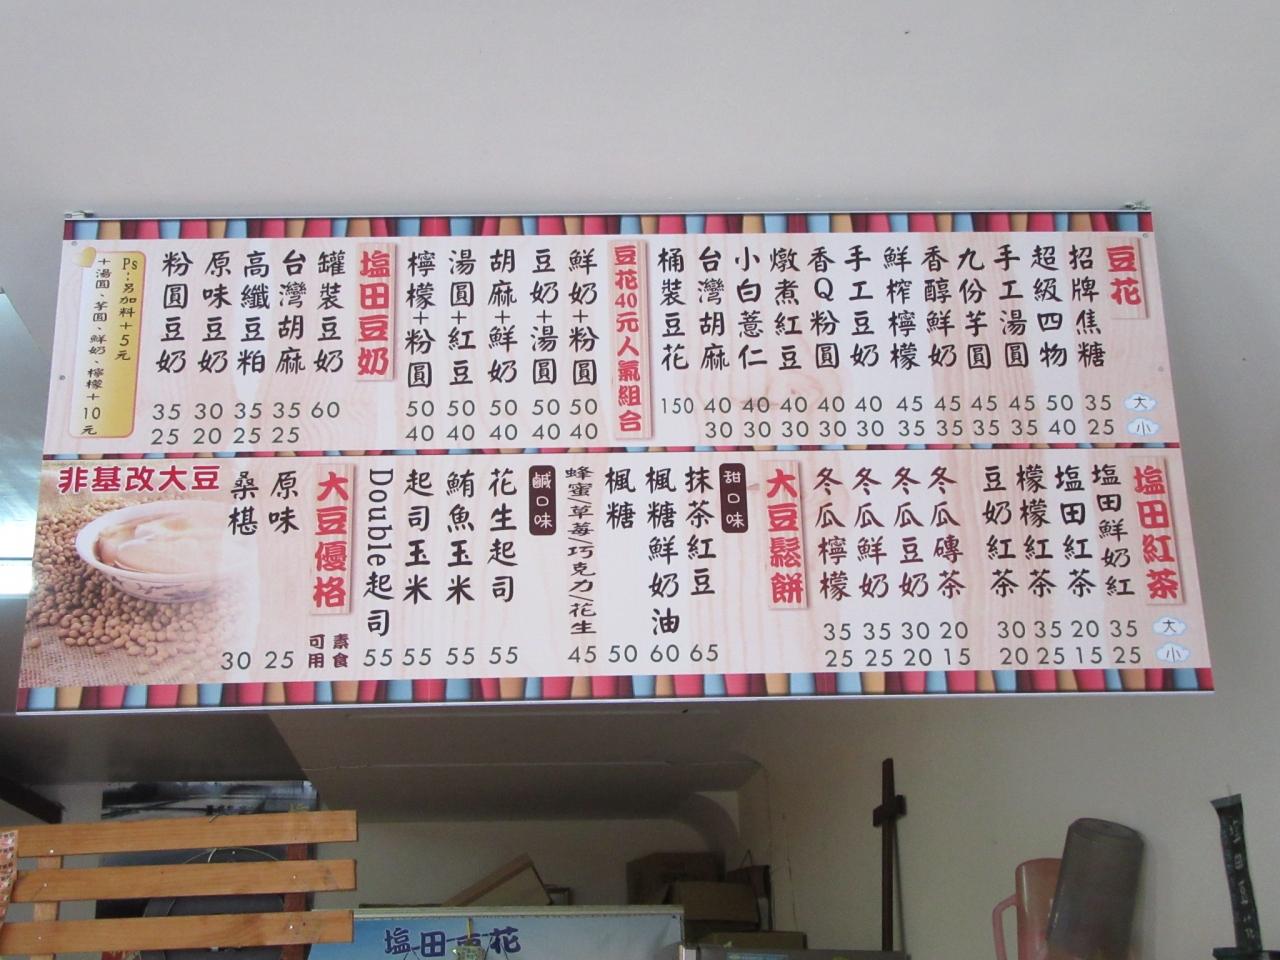 豆花
大 小
招牌焦糖 35 25
超級四物 50 40
手工湯圓 45 35
九份芋圓 45 35
香醇鮮奶 45 35
鮮榨檸檬 45 35
手工豆奶 40 30
香Q粉圓 40 30
燉煮紅豆 40 30
小白薏仁 40 30
台灣胡麻 40 30
桶裝豆花 150
豆花40元人氣組合
鮮奶+粉圓 50 40
豆奶+湯圓 50 40
胡麻+鮮奶 50 40
湯圓+紅豆 50 40
檸檬+粉圓 50 40
塩田豆奶
罐裝豆奶 60
台灣胡麻 35 25
高纖豆粕 35 25
原味豆奶 30 20
粉圓豆奶 35 25
Ps:另加料+5元
+湯圓、芋圓、鮮奶、檸檬+10元
塩田紅茶
大 小
塩田鮮奶紅 35 25
塩田紅茶 20 15
檬檬紅茶 35 25
豆奶紅茶 30 20
冬瓜磚茶 20 15
冬瓜豆奶 30 20
冬瓜鮮奶 35 25
冬瓜檸檬 35 25
大豆鬆餅
甜口味
抹茶紅豆 65
楓糖鮮奶油 60
楓糖 50
蜂蜜/草莓/巧克力/花生 45
鹹口味
花生起司 55
鮪魚玉米 55
起司玉米 55
Double起司 55
大豆優格
素食可用
原味 25
桑椹 30
非基改大豆
塩田豆花